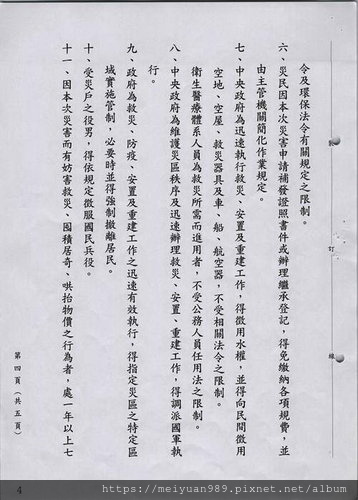 令及環保法令有關規定之限制。
六、災民因本次災害申請補發證照書件或辦理繼承登記，得免繳納各項規費，並
由主管機關簡化作業規定。
七、中央政府為迅速執行救災、安置及重建工作，得徵用水權，並得向民間徵用
空地、空屋、救災器具及車、船、航空器，不受相關法令之限制。
衛生醫療體系人員為救災所需而進用者，不受公務人員任用法之限制。
八、中央政府為維護災區秩序及迅速辦理救災、安置、重建工作，得調派國軍執
行。
九、政府為救災、防疫、安置及重建工作之迅速有效執行，得指定災區之特定區
域實施管制，必要時並得強制撤離居民。
十、受災戶之役男，得依規定徵服國民兵役。
十一、因本次災害而有妨害救災、囤積居奇、哄抬物價之行為者，處一年以上七
第四頁（共五頁）
訂
線
4
https://meiyuan989.pixnet.net/album